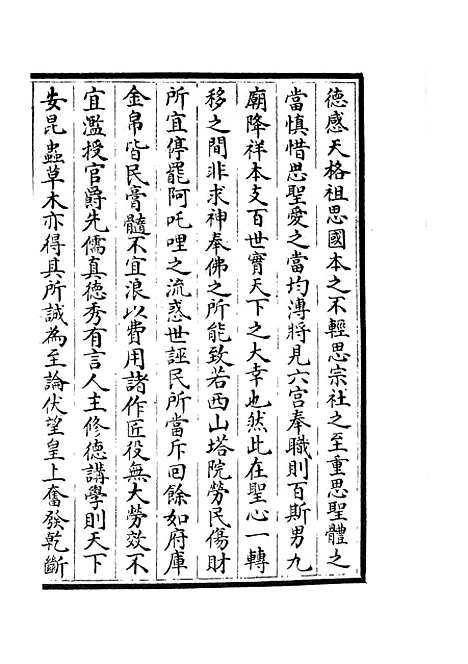 德感天格祖思國本之不輕思宗社之至重思聖體之
當慎惜思聖愛之當均溥將見六宫奉職則百斯男九
廟降祥本支百世實天下之大幸也然此在聖心一轉
移之間非求神奉佛之所能致若西山塔院勞民傷財
所宜停罷阿吒哩之流惑世誣民所當斥回餘如府庫
金帛皆民膏髓不宜浪以費用諸作匠役無大勞效不
宜濫授官爵先儒真德秀有言人主修德講學則天下
安昆蟲草木亦得其所誠為至論伏望皇上奮發乾斷